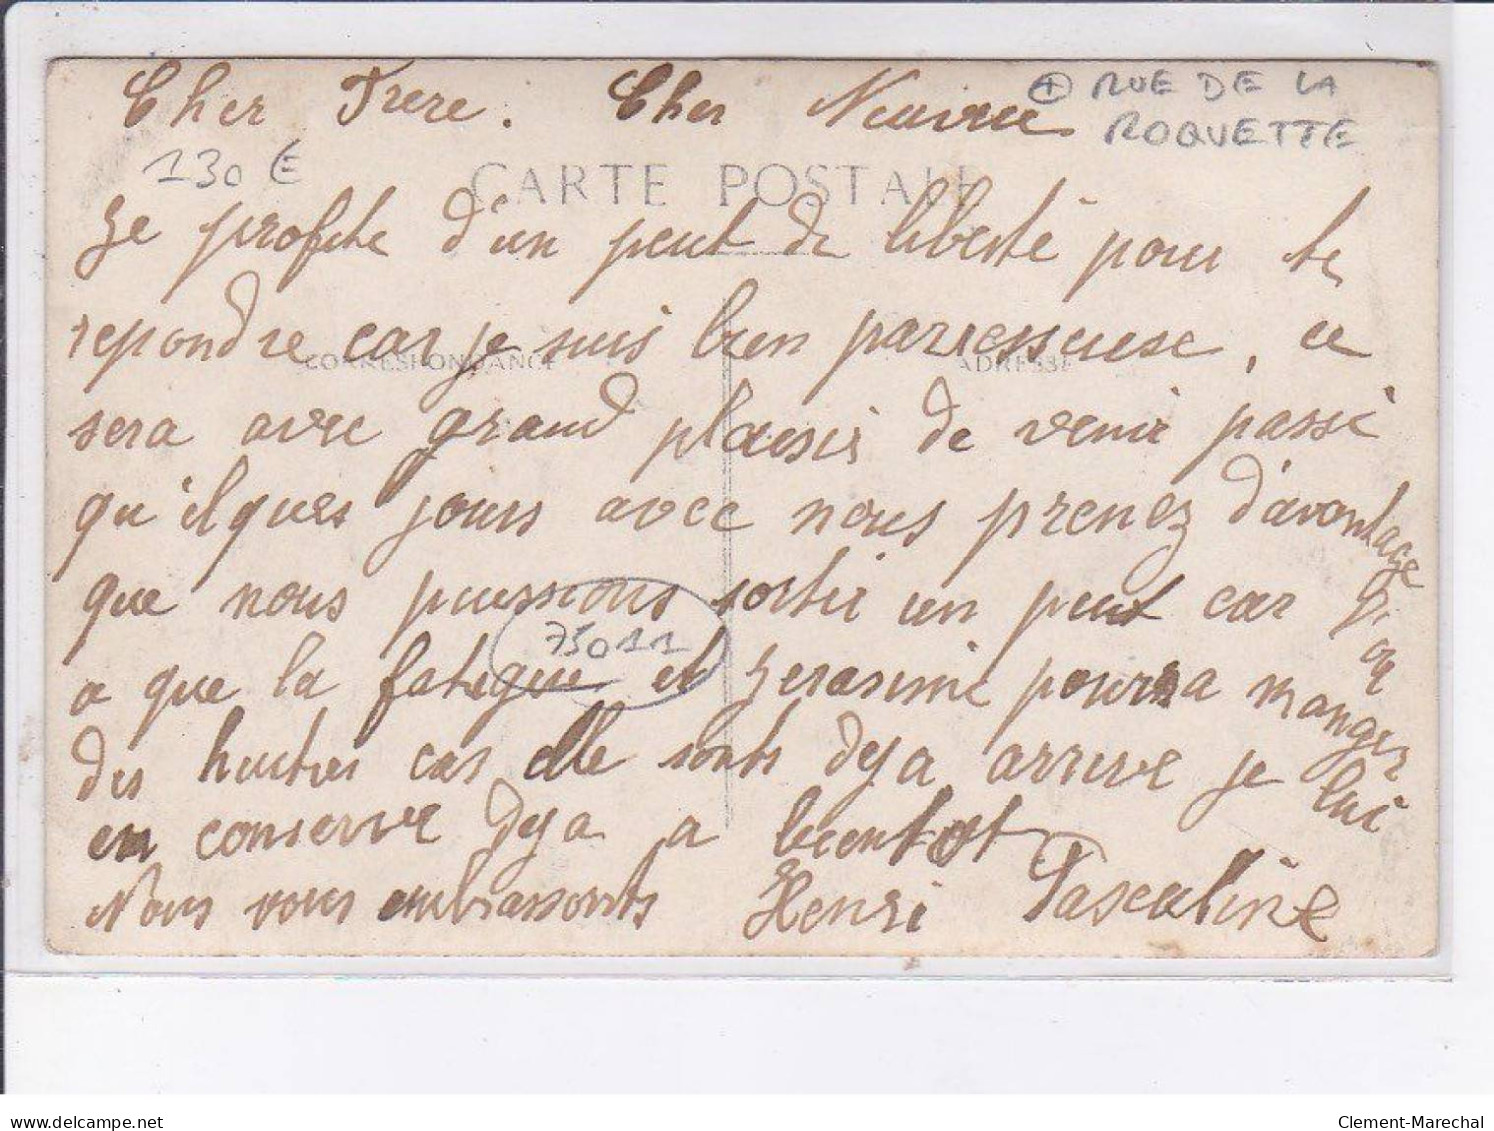 Cher Frere. Cher Neuveu
⊕ RUE DE LA
ROQUETTE
130 €
CARTE POSTALE
Je profite d'un peut de liberté pour te
repondre car je suis bien parresseuse, ce
CORRESPONDANCE
ADRESSE
sera avec grand plaisir de venir passé
qu'ilques jours avec nous prenez d'avontage
que nous puissions sortir un peut car
a que la fatigue et Gerasime pourra manger
75011
des huitres cas elle sonts deja arrive je lui
en conserve deja a bientost
Nous vous embrassonts Henri Pascaline
delcampe.net
Clement-Marechal